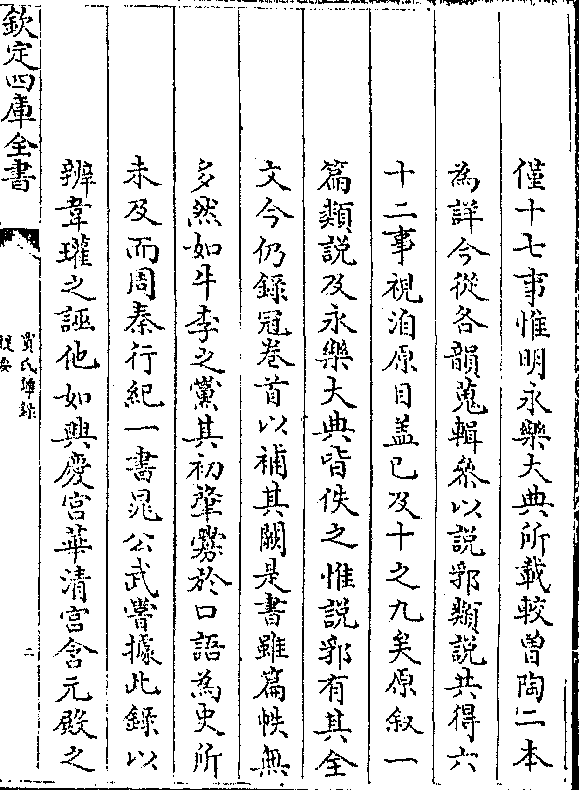 僅十七事惟明永樂大典所載較曽陶二本
為詳今從各韻蒐輯叅以説郛類説共得六
十二事視洎原目盖已及十之九矣原叙一
篇類説及永樂大典皆佚之惟説郛有其全
文今仍錄冠卷首以補其闕是書雖篇帙無
多然如牛李之黨其初肇釁於口語為史所
未及而周秦行紀一書晁公武嘗據此錄以
辨韋瓘之誣他如興慶宫華清宫含元殿之
欽定四庫全書
賈氏譚錄
提要
二